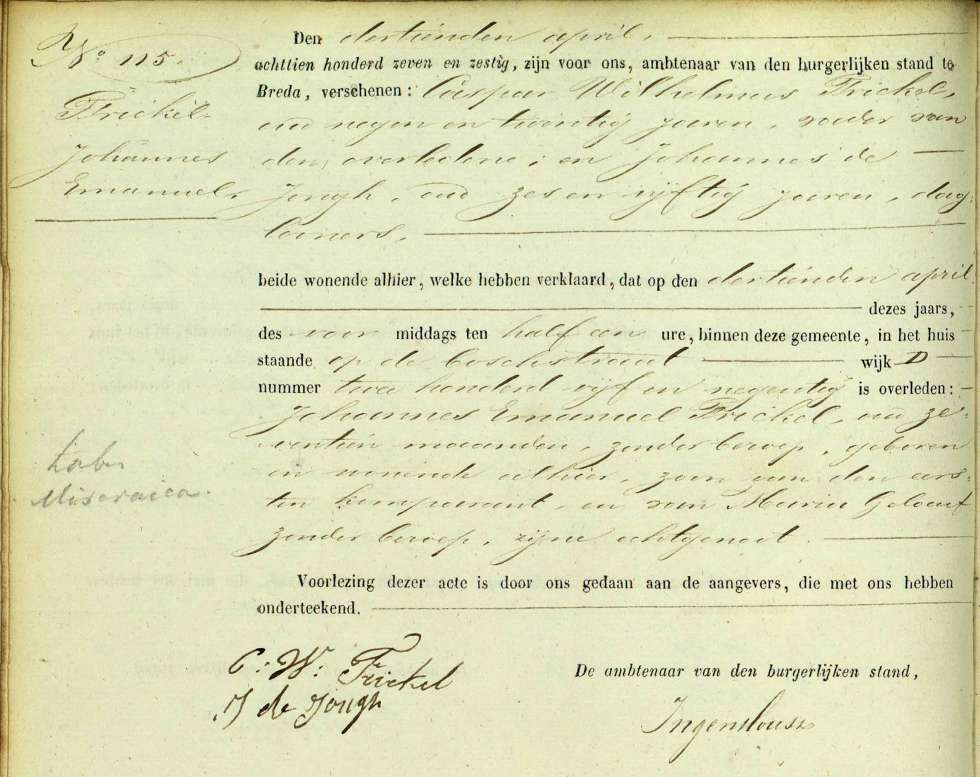 No 115.
Frickel
Johannes
Emanuel
Den dertienden april,
achttien honderd zeven en zestig, zijn voor ons, ambtenaar van den burgerlijken stand te
Breda, verschenen: Caspar Wilhelmus Frickel,
oud negen en twintig jaren, vader van
den overledene; en Johannes de
Jongh, oud zes en vijftig jaren, dag-
looners,
beide wonende alhier, welke hebben verklaard, dat op den dertienden april
dezes jaars,
des voor middags ten half een ure, binnen deze gemeente, in het huis
staande op de boschstraat wijk D
nummer twee honderd vijf en negentig is overleden:
Johannes Emanuel Frickel, oud ze-
ventien maanden, zonder beroep, geboren
en wonende alhier, zoon van den eers-
ten komparant, en van Maria
zonder beroep, zijne echtgenoot.
Voorlezing dezer acte is door ons gedaan aan de aangevers, die met ons hebben
onderteekend.
C. W. Frickel
J de Jongh
De ambtenaar van den burgerlijken stand,
IngenHousz